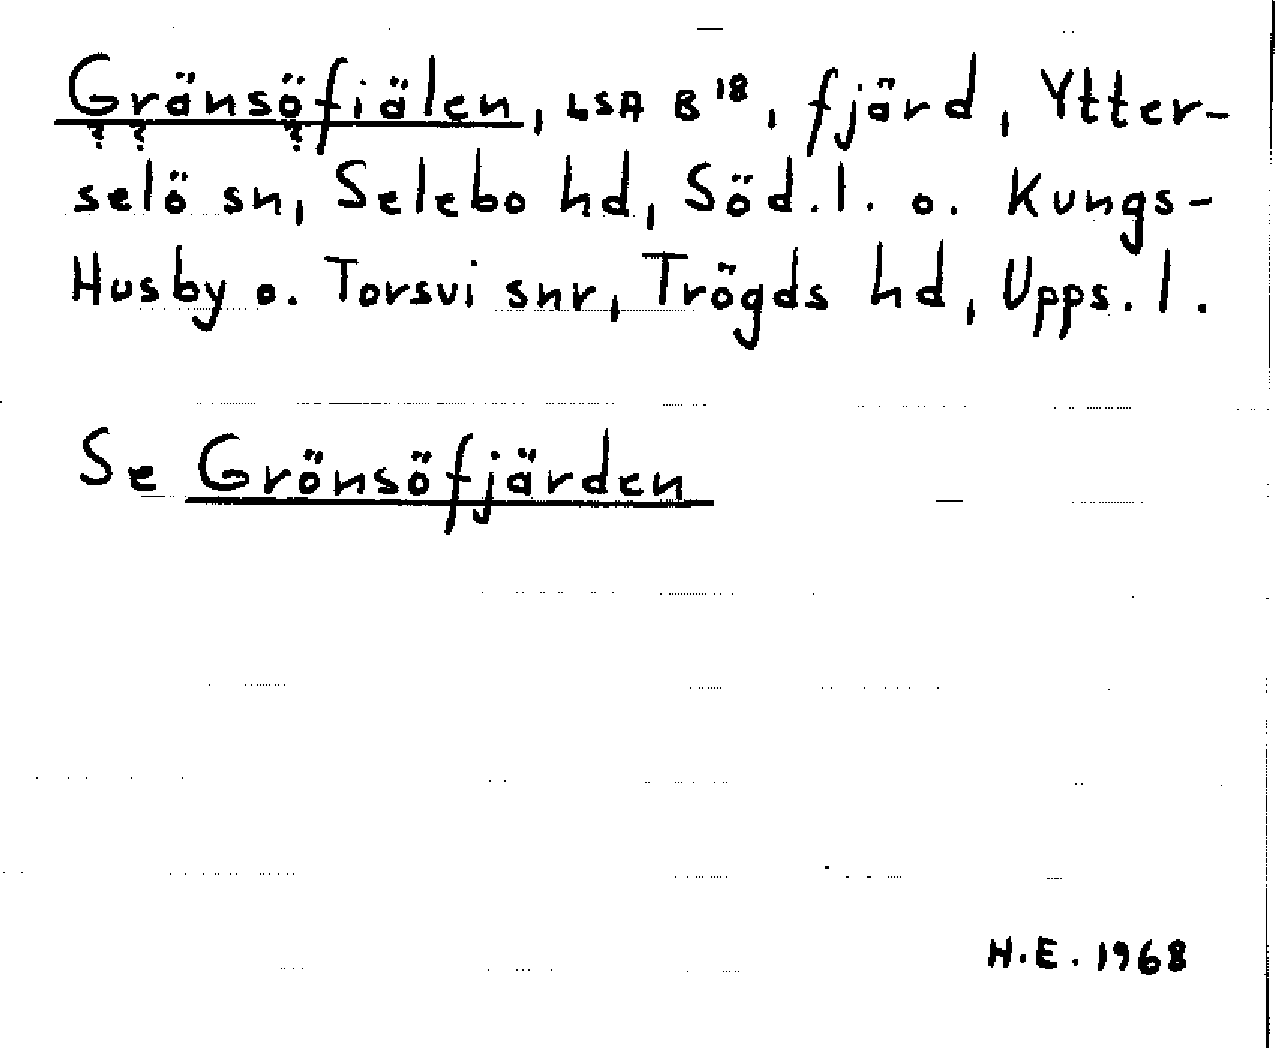 Gränsöfiälen, LSA B 18, fjärd, Ytter-
selö sn, Selebo hd, Söd. l. o. Kungs-
Husby o. Torsvi snr, Trögds hd, Upps. l.
Se Grönsöfjärden
H.E. 1968